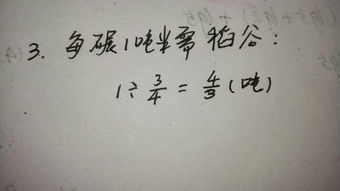 3. 每碾1吨米需稻谷:
1÷3/4 = 4/3 (吨)